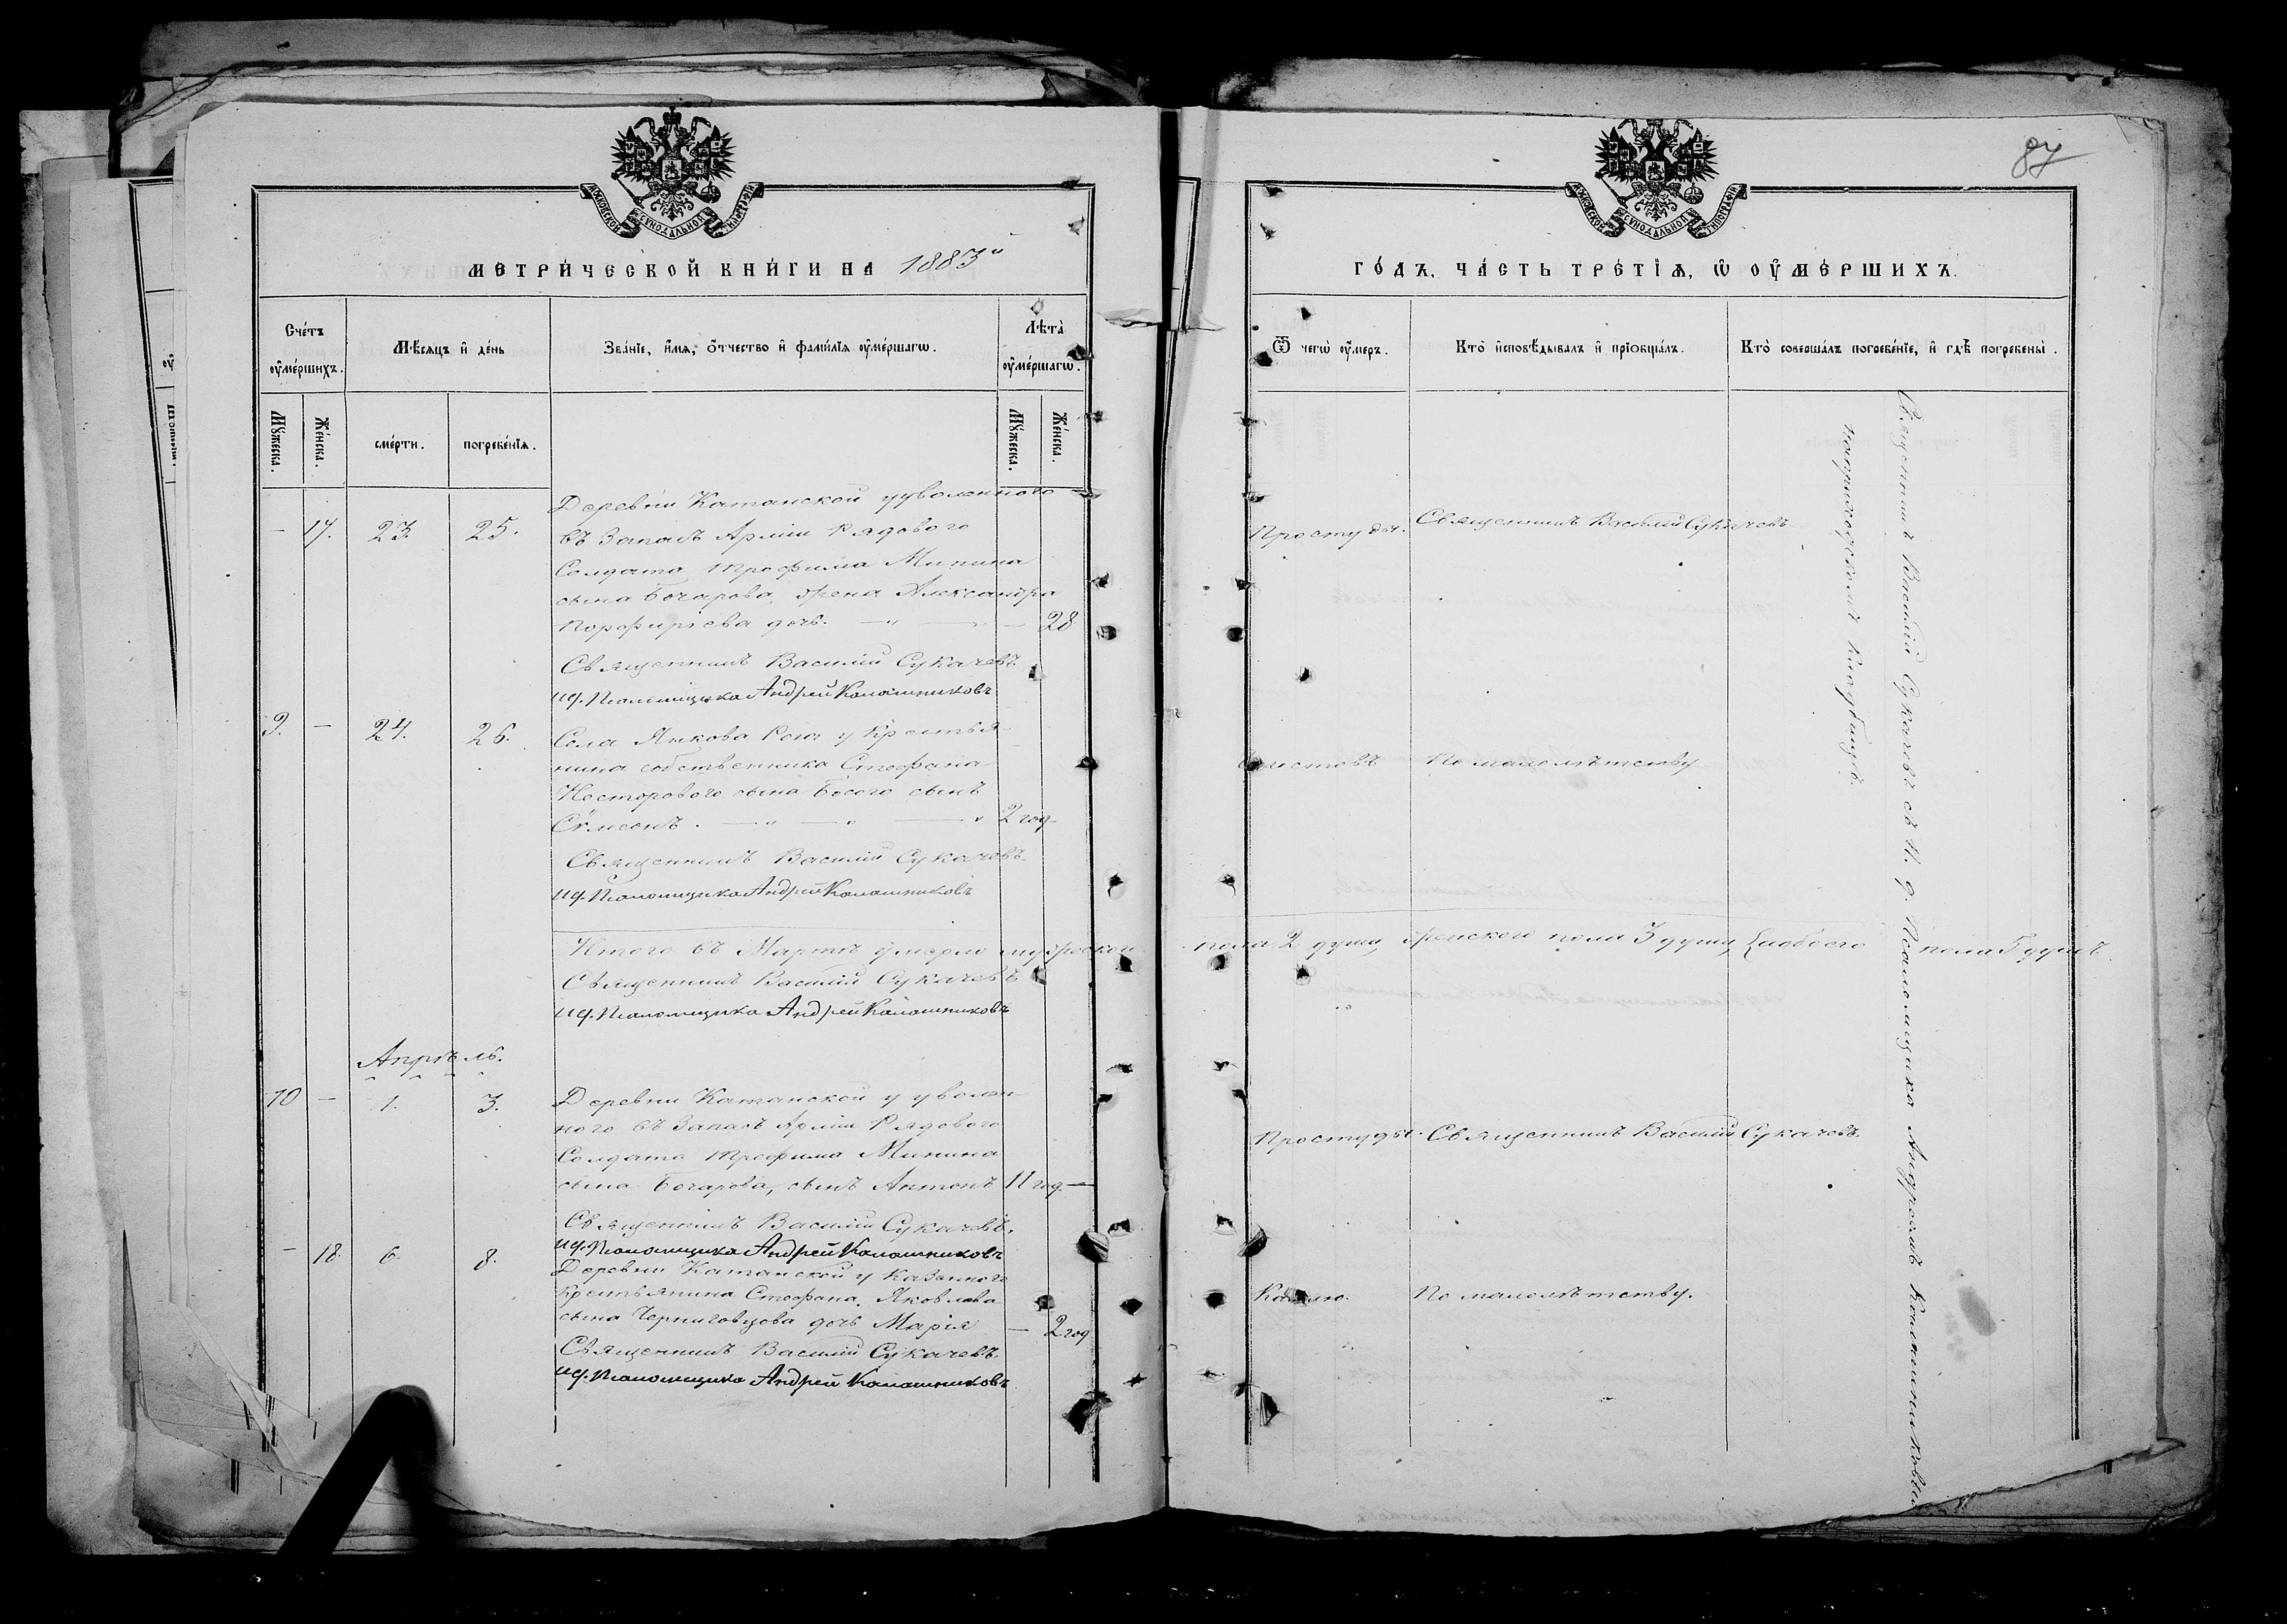 МОСКОВСКОЙ СУНОДАЛЬНОЙ ТИПОГРАФІИ
МЕТРИЧЕСКОЙ КНИГИ НА 1883й
Счетъ оумершихъ.
Мѣсяцъ и день
Званіе, имя, отчество и фамилія оумершагѡ.
Лѣта оумершагѡ.
Мужеска.
Женска.
смерти.
погребенія.
Мужеска.
Женска.
Деревни Катанской у уволенного
— 17. 23. 25. въ Запасъ Арміи Рядового
Солдата Трофима Минина
сына Бочарова, жена Александра
Порфиріева дочь. — 28
Священникъ Василій Сукачевъ
И. д. Псаломщика Андрей Калашниковъ
9. — 24. 26. Села Янкова Рога у Крестья
нина собственника Стефана
Несторового сына Босого сынъ
Сѵмеонъ. 2 год —
Священникъ Василій Сукачевъ.
И. д. Псаломщика Андрей Калашниковъ
Итого въ Мартѣ умерло мужеского
Священникъ Василій Сукачевъ
И. д. Псаломщика Андрей Калашниковъ
Апрѣль.
10 — 1. 3. Деревни Катанской у уволен
ного въ Запасъ Арміи Рядового
Солдата Трофима Минина
сына Бочарова, сынъ Антонъ 11 год. —
Священникъ Василій Сукачевъ.
И. д. Псаломщика Андрей Калашниковъ
— 18. 6. 8. Деревни Катанской у Казенного
Крестьянина Стефана Яковлева
сына Черниговцова дочь Марія — 2 год
Священникъ Василій Сукачевъ.
И. д. Псаломщика Андрей Калашниковъ
87
МОСКОВСКОЙ СУНОДАЛЬНОЙ ТИПОГРАФІИ
ГОДЪ, ЧАСТЬ ТРЕТІЯ, Ѡ ОУМЕРШИХЪ.
Ѿ чегѡ оумеръ.
Кто исповѣдывалъ и пріобщалъ.
Кто совершалъ погребеніе, и гдѣ погребены.
Простуды. Священникъ Василій Сукачевъ
По малолѣтству
пола 2 души, женского пола 3 души, обоего пола 5 душъ.
Простуды. Священникъ Василій Сукачевъ.
Кашлю. По малолѣтству.
Священникъ Василій Сукачевъ съ И. д. Псаломщика Андреемъ Калашниковымъ
на приходскомъ кладбищѣ.